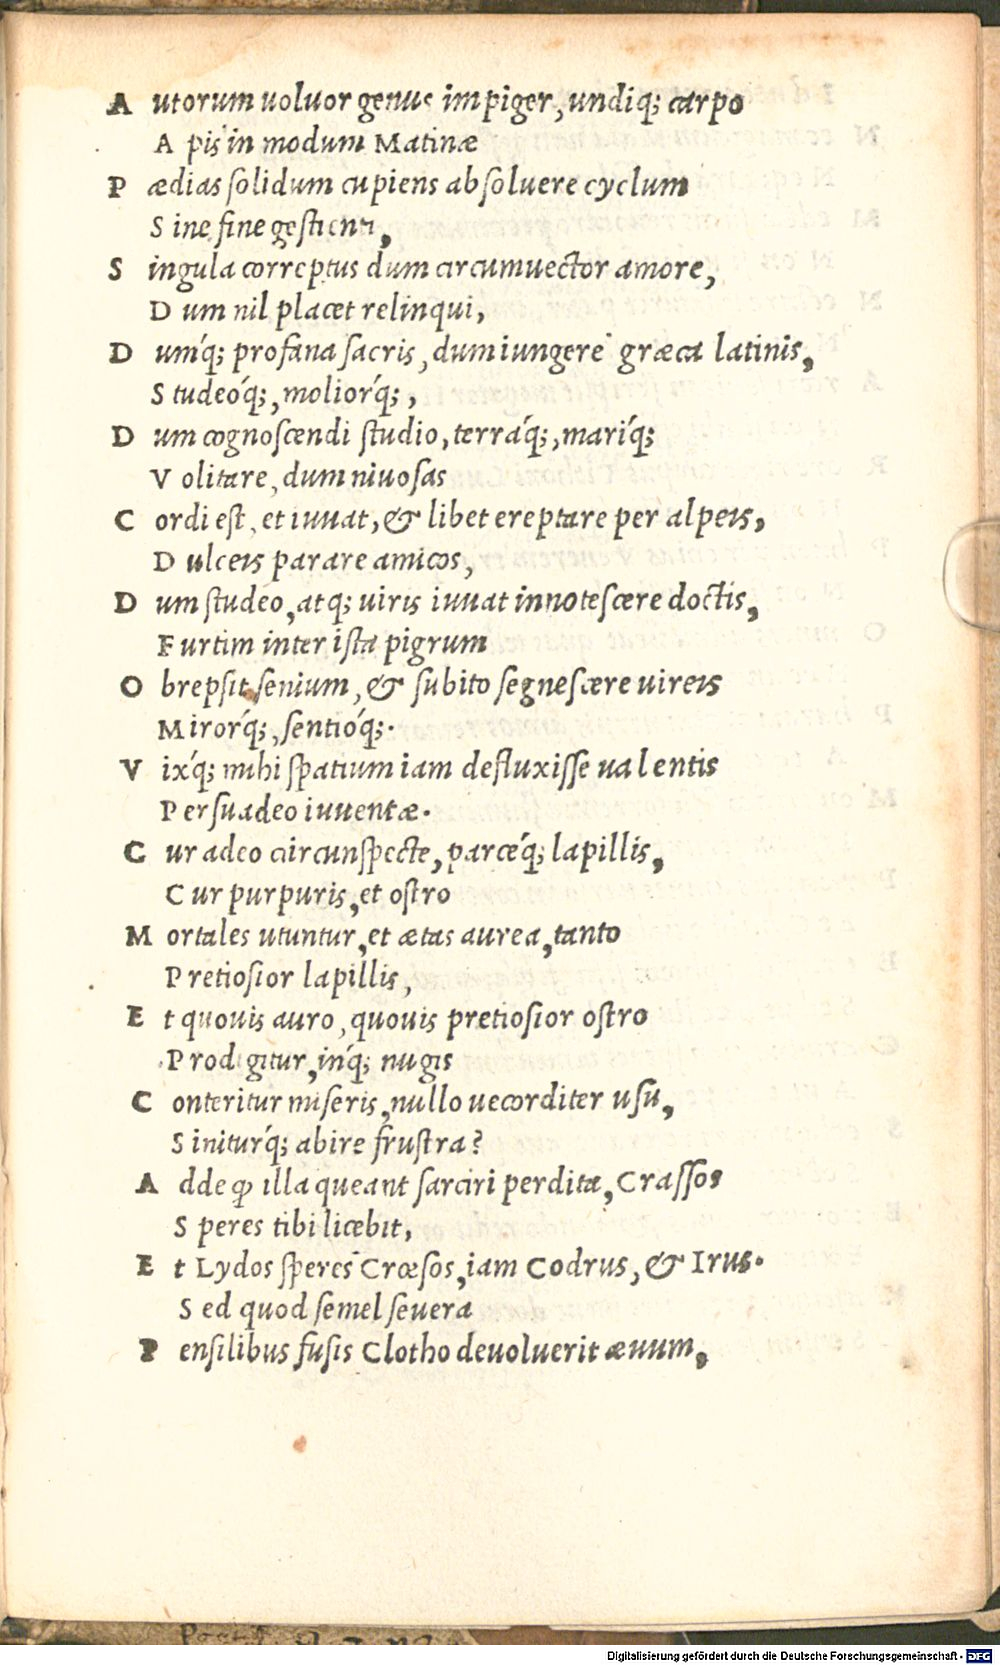 Autorum voluor genus impiger, undiq; carpo
Apis in modum Matinæ
Pædias solidum cupiens absoluere cyclum
Sine fine gestienti,
Singula correptus dum circumuector amore,
Dum nil placet relinqui,
Dumq́; profana sacris, dum iungere græca latinis,
Studeóq́;, moliorq́;,
Dum cognoscendi studio, terráq́;, mariq́;
Volitare, dum nivosas
Cordi est, et iuvat, & libet ereptare per alpeis,
Dulceis parare amicos,
Dum studeo, atq; viris iuvat innotescere doctis,
Furtim inter ista pigrum
Obrepsit senium, & subito segnescere vireis
Mirorq́;, sentióq́;.
Vixq́; mihi spatium iam defluxisse valentis
Persuadeo iuventæ.
Cur adeo circunspecte, parceq́; lapillis,
Cur purpuris, et ostro
Mortales utuntur, et ætas aurea, tanto
Pretiosior lapillis,
Et quovis auro, quovis pretiosior ostro
Prodigitur, inq́; nugis
Conteritur miseris, nullo vecorditer usu,
Siniturq́; abire frustra?
Adde ꝙ illa queant sarciri perdita, Crassos
Speres tibi licebit,
Et Lydos speres Crœsos, iam Codrus, & Irus.
Sed quod semel severa
Pensilibus fusis Clotho devolverit ævum,
Digitalisierung gefördert durch die Deutsche Forschungsgemeinschaft - DFG